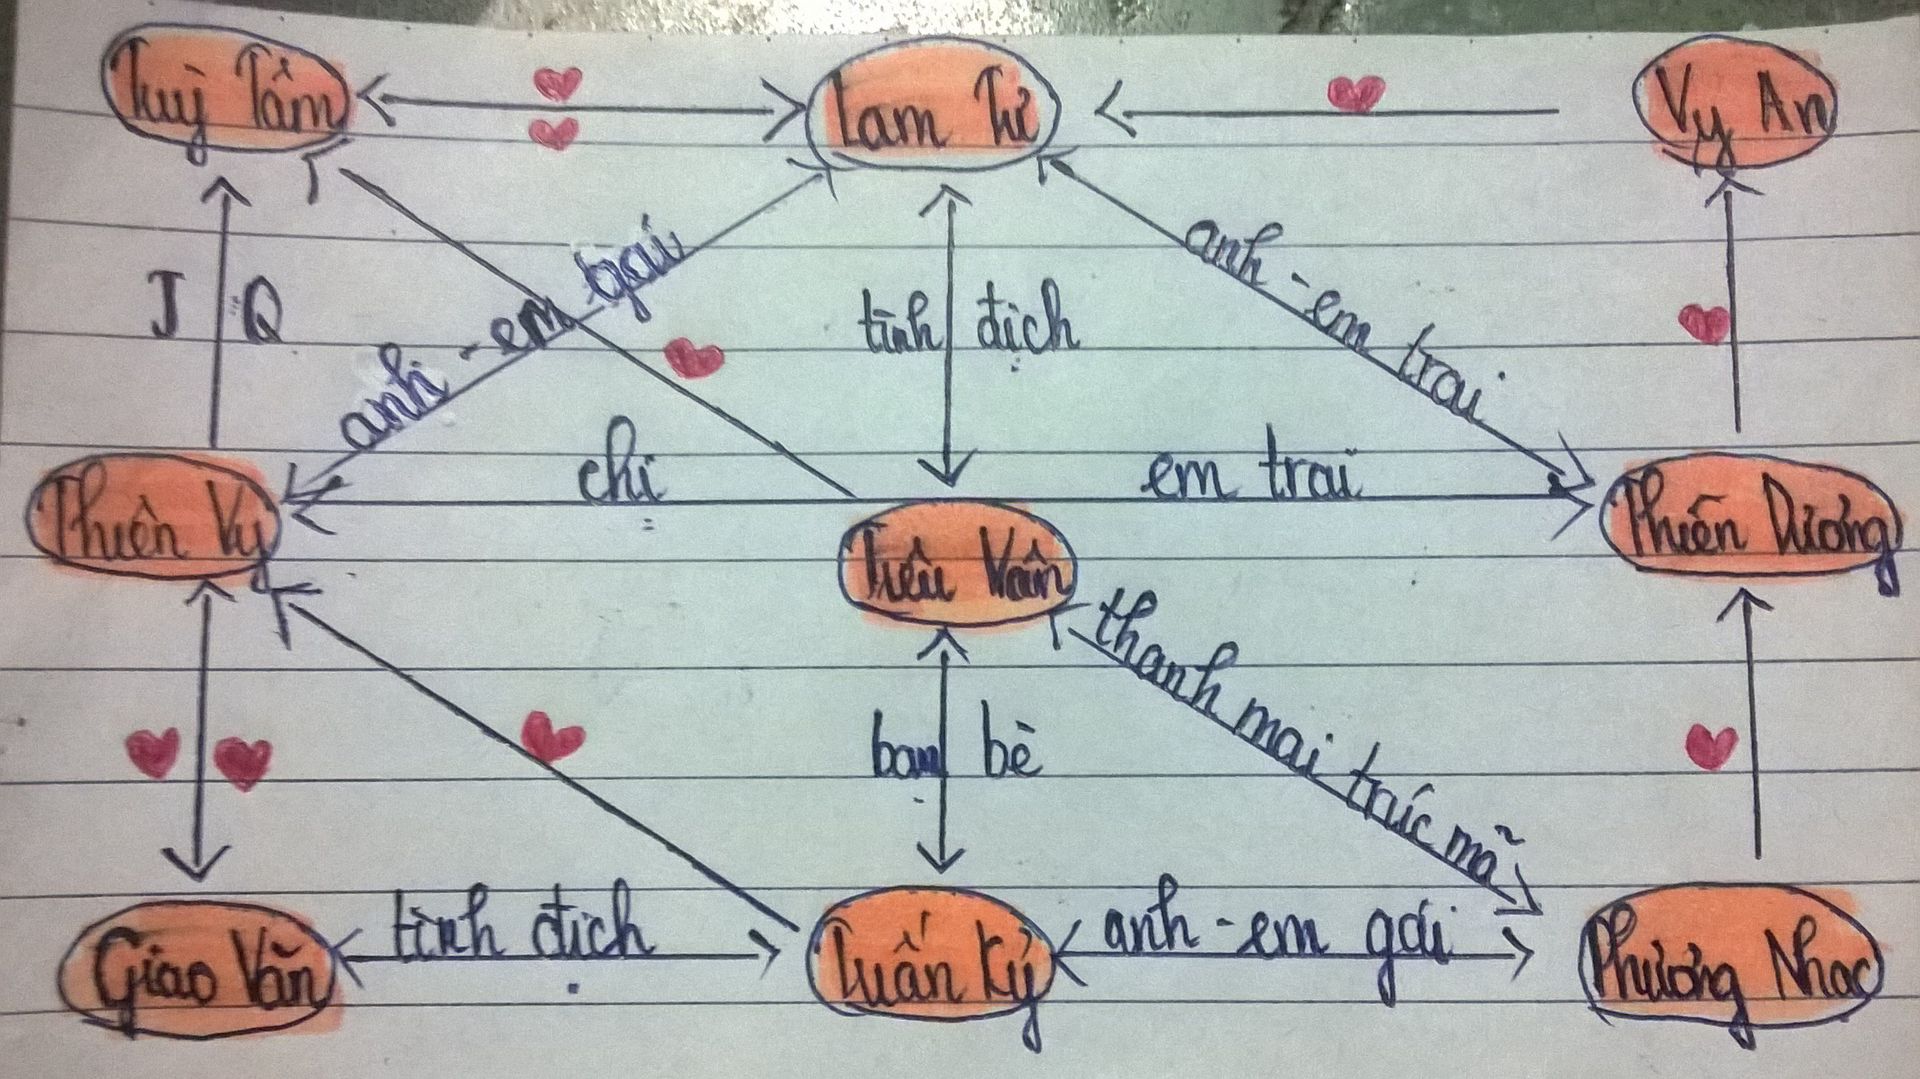 Tuỳ Tâm
Lam Tư
Vy An
anh - em gái
anh - em trai
J Q
tình địch
chị
em trai
Thiên Vy
Tiêu Vân
Thiên Dương
thanh mai trúc mã
bạn bè
tình địch
anh - em gái
Giao Văn
Tuấn Kỷ
Phương Nhạc